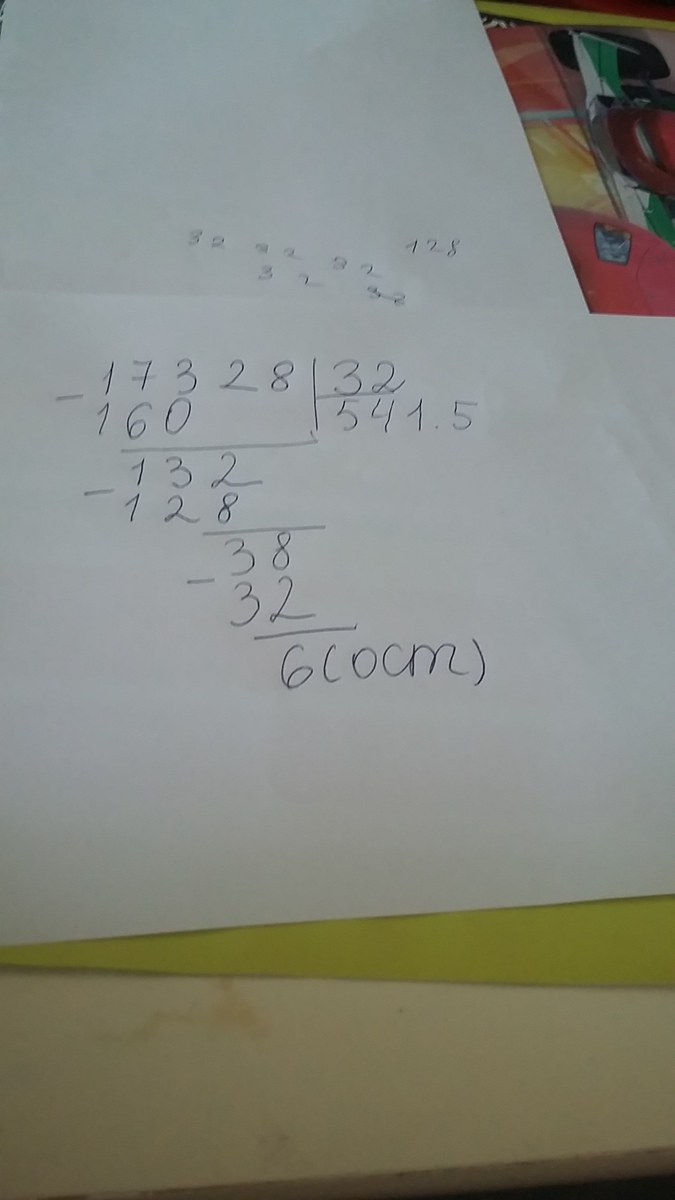 32 32 32 128
32 32
32
- 17328 | 32
160 541.5
- 132
128
38
- 32
6(ост)